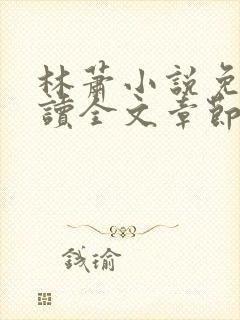 林蕭小說免
讀全文章節
錢瑜